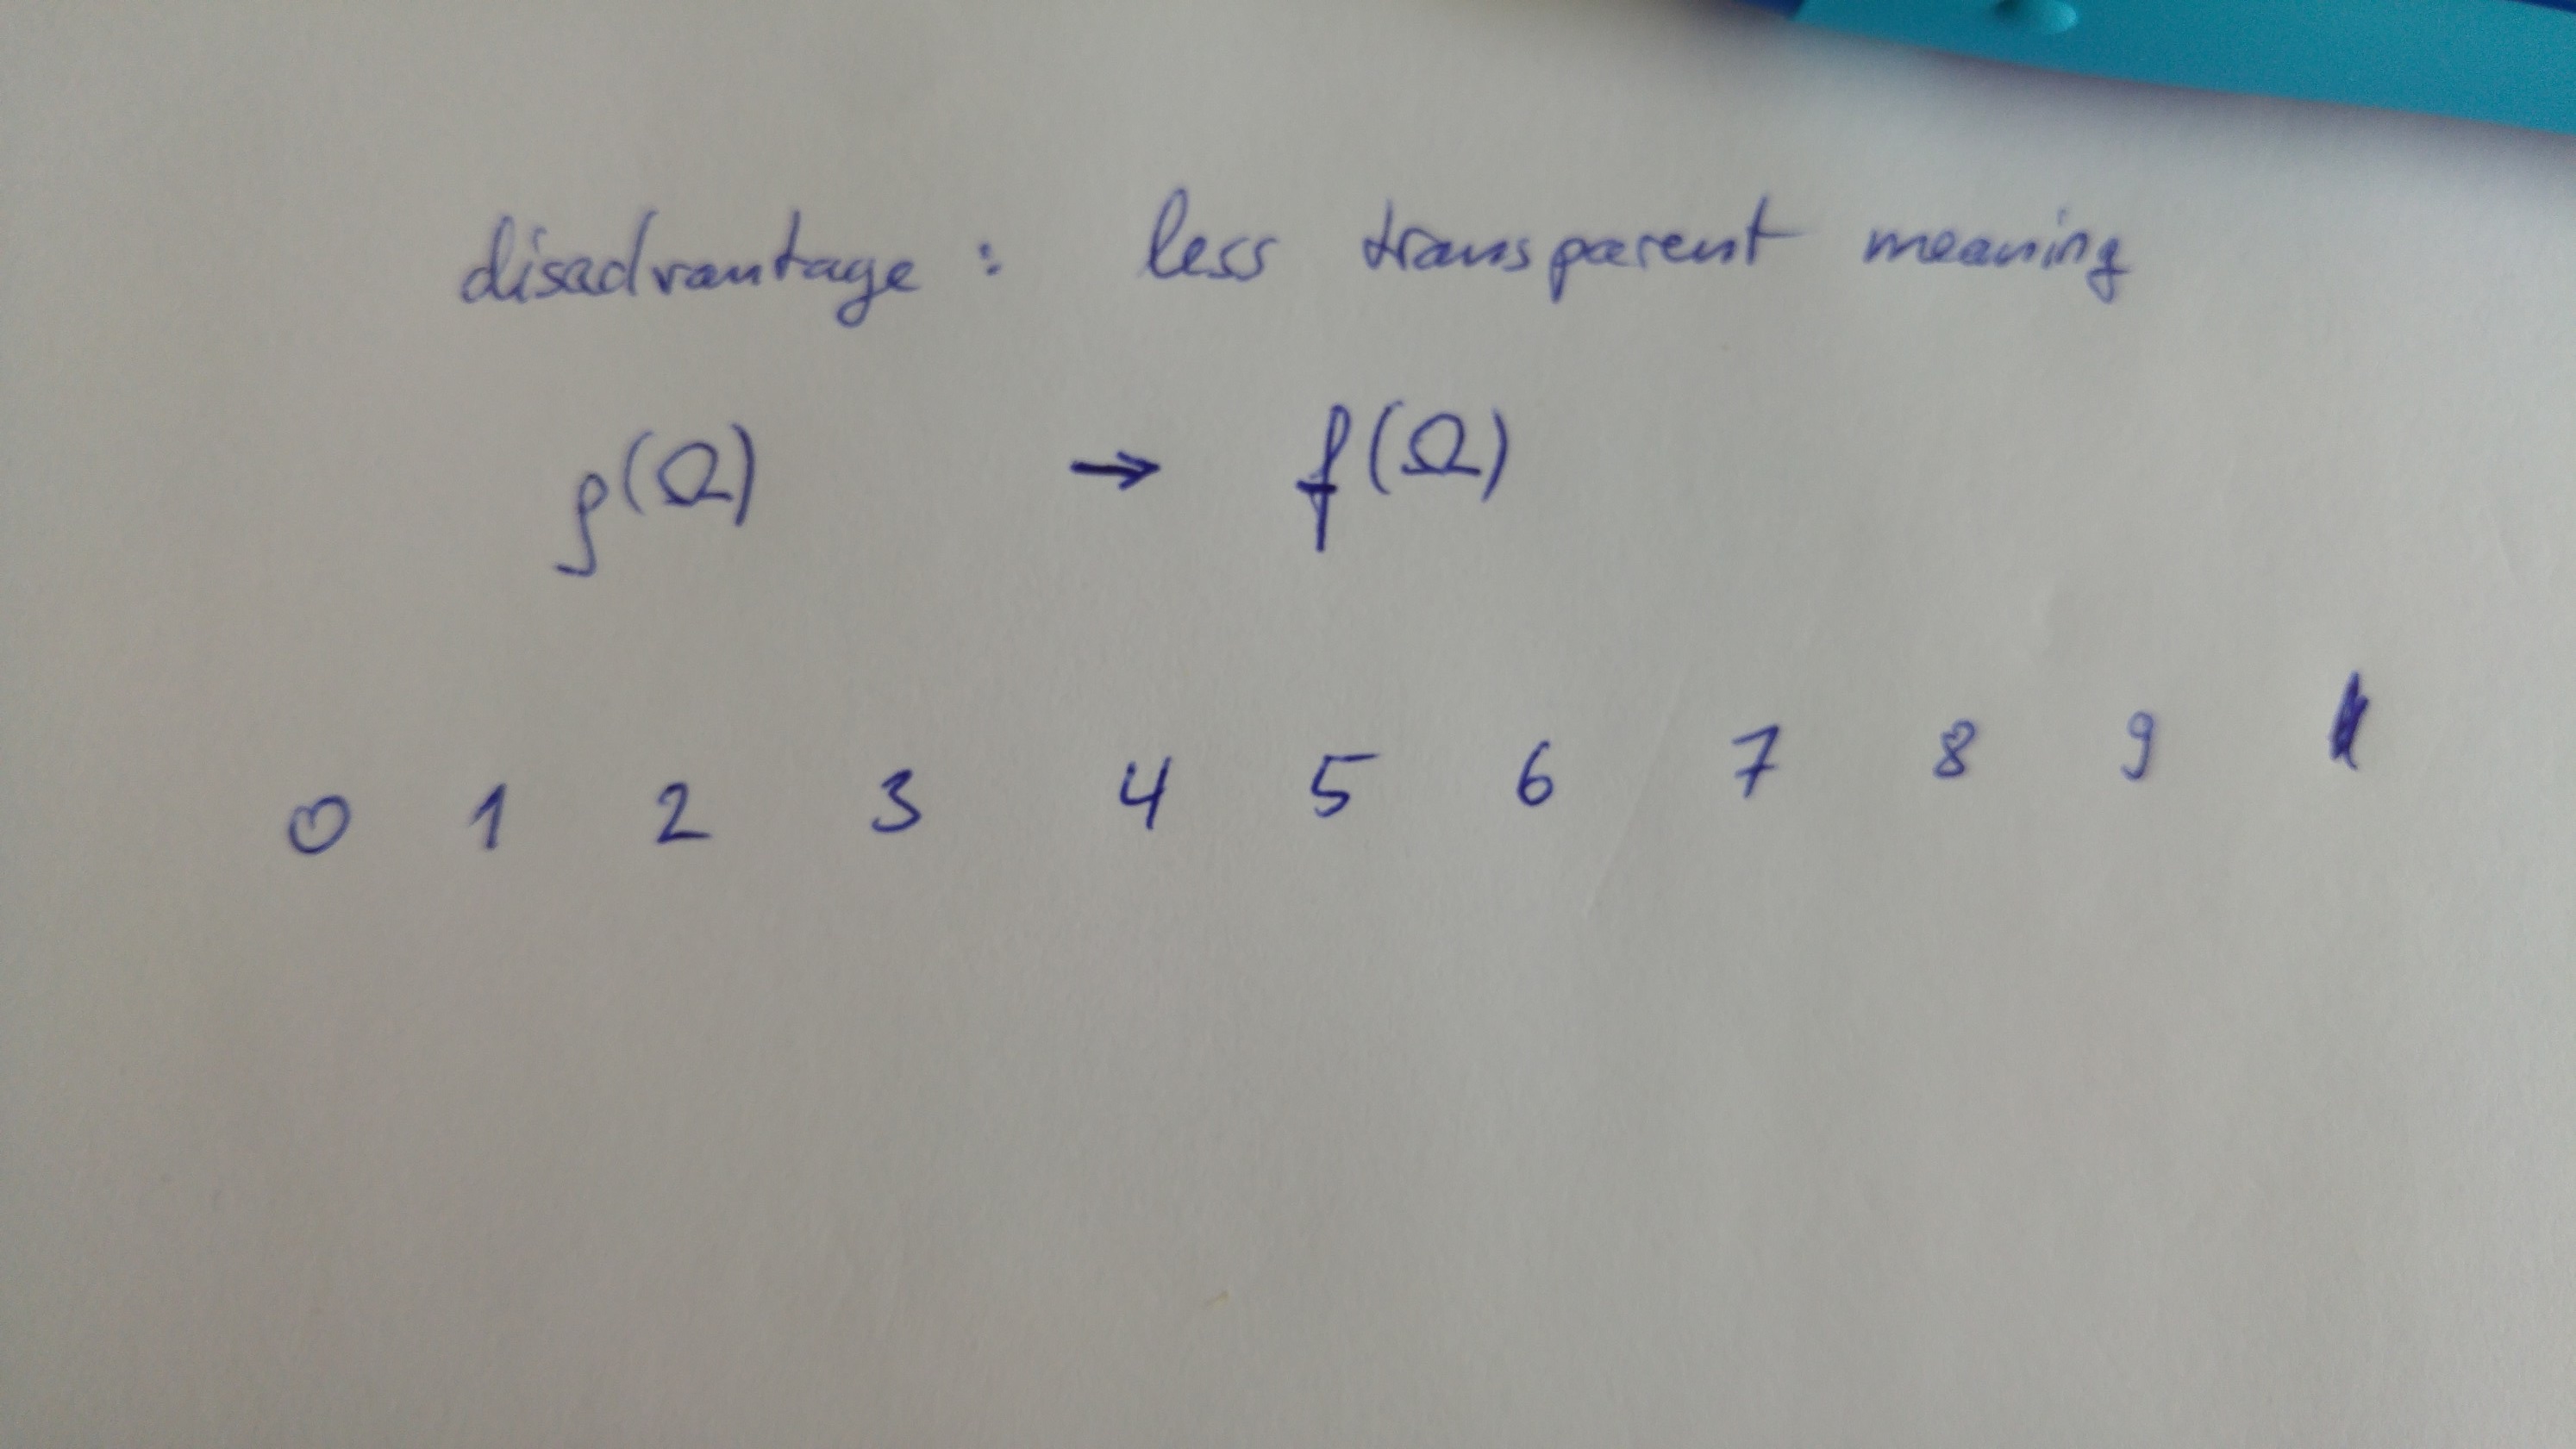 disadvantage: less transparent meaning
ρ(Ω) → f(Ω)
0 1 2 3 4 5 6 7 8 9